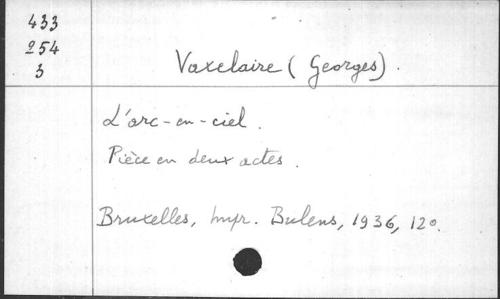 433
254
3
Vaxelaire (Georges).
L'arc-en-ciel.
Pièce en deux actes.
Bruxelles, Impr. Bulens, 1936, 12°.